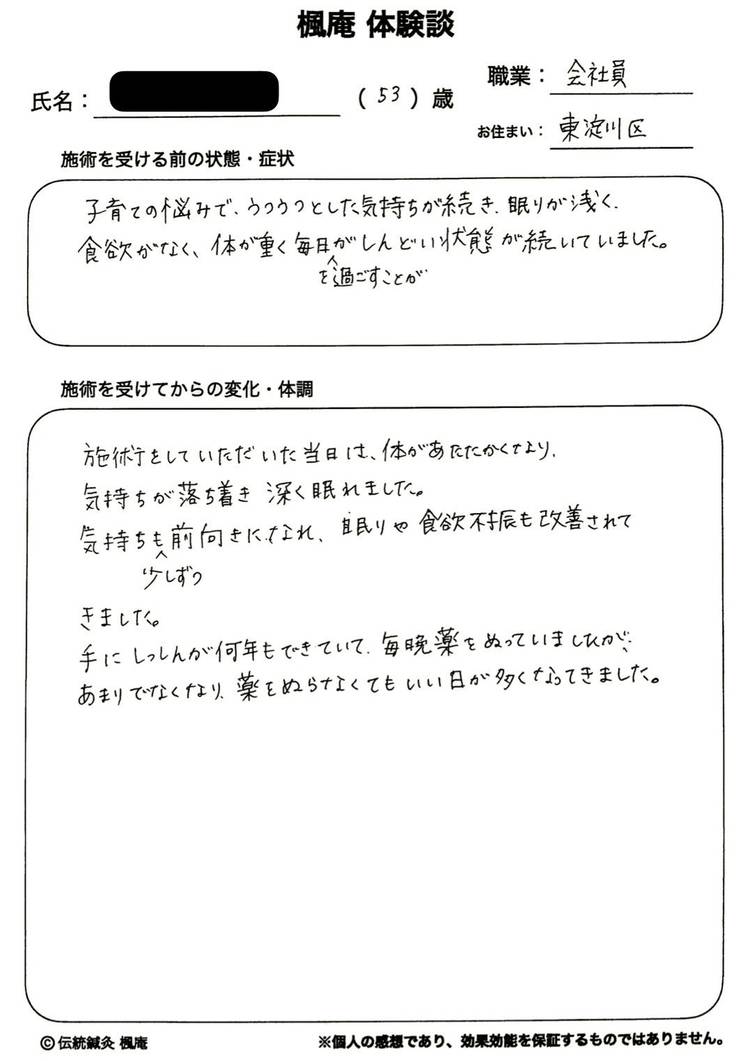 楓庵 体験談
職業： 会社員
氏名： （ 53 ）歳
お住まい： 東淀川区
施術を受ける前の状態・症状
子育ての悩みで、うつうつとした気持ちが続き、眠りが浅く、
食欲がなく、体が重く毎日がしんどい状態が続いていました。
を過ごすことが
施術を受けてからの変化・体調
施術をしていただいた当日は、体があたたかくなり、
気持ちが落ち着き 深く眠れました。
気持ちも前向きになれ、眠りや食欲不振も改善されて
少しずつ
きました。
手にしっしんが何年もできていて、毎晩薬をぬっていましたが、
あまりでなくなり、薬をぬらなくてもいい日が多くなってきました。
© 伝統鍼灸 楓庵
※個人の感想であり、効果効能を保証するものではありません。